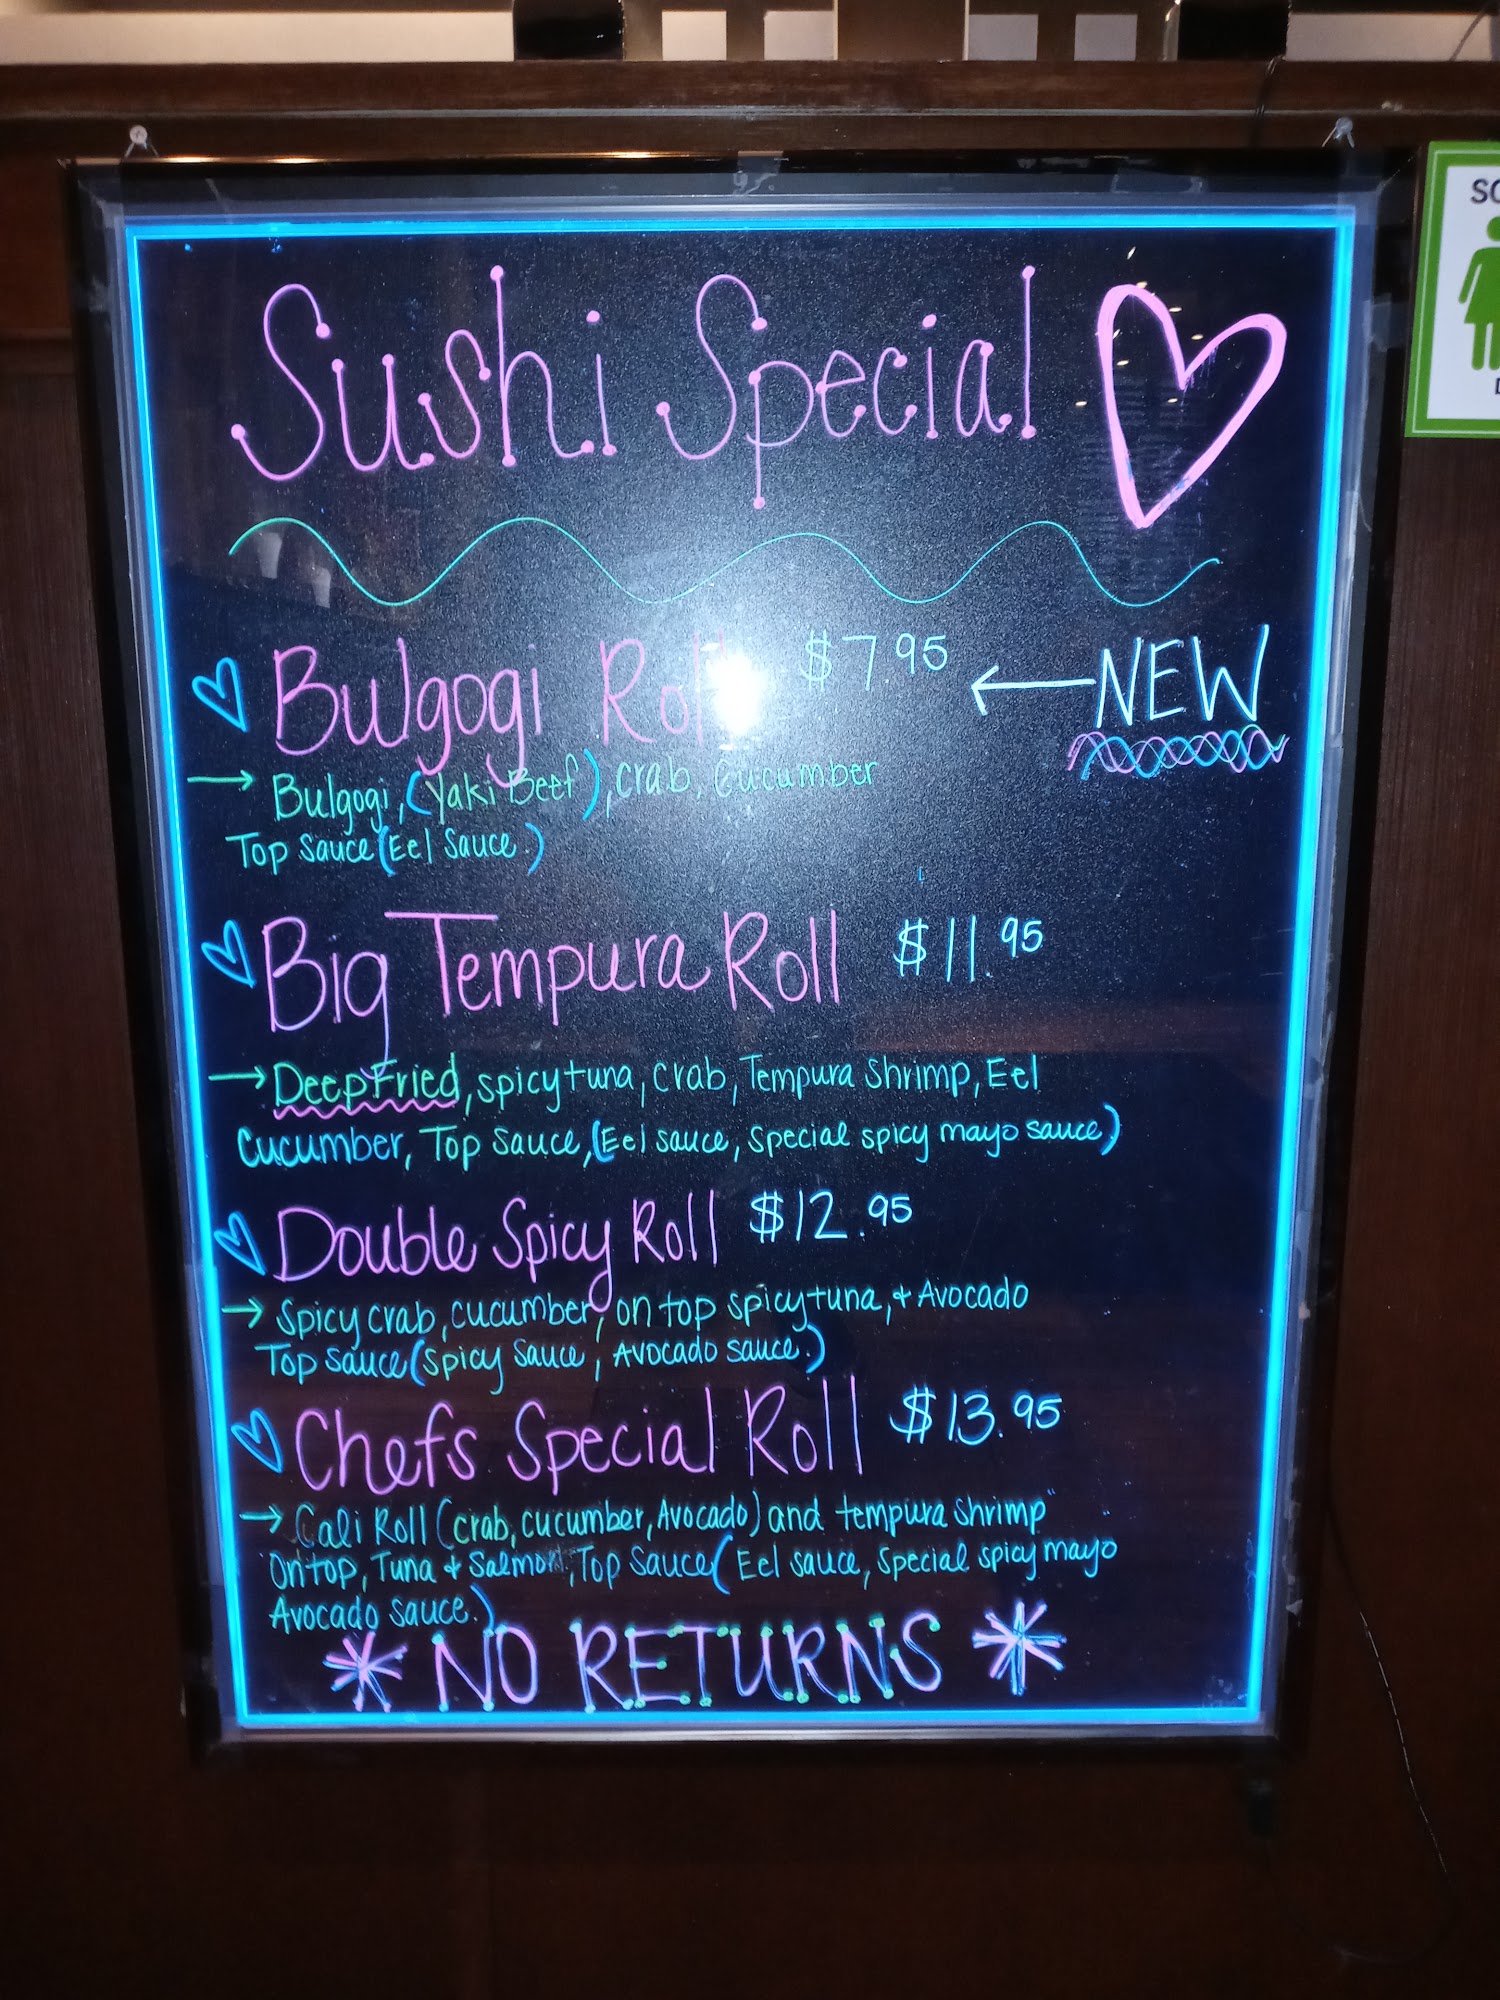 Sushi Special
Bulgogi Roll $7.95 ← NEW
→ Bulgogi, (Yaki Beef), crab, Cucumber
Top Sauce (Eel Sauce.)
Big Tempura Roll $11.95
→ Deep Fried, spicy tuna, crab, Tempura Shrimp, Eel
Cucumber, Top Sauce, (Eel sauce, Special spicy mayo sauce)
Double Spicy Roll $12.95
→ Spicy crab, cucumber, on top spicy tuna, + Avocado
Top Sauce (Spicy Sauce, Avocado sauce.)
Chefs Special Roll $13.95
→ Cali Roll (crab, cucumber, Avocado) and tempura shrimp
On top, Tuna + Salmon, Top Sauce (Eel sauce, Special spicy mayo
Avocado sauce.)
* NO RETURNS *